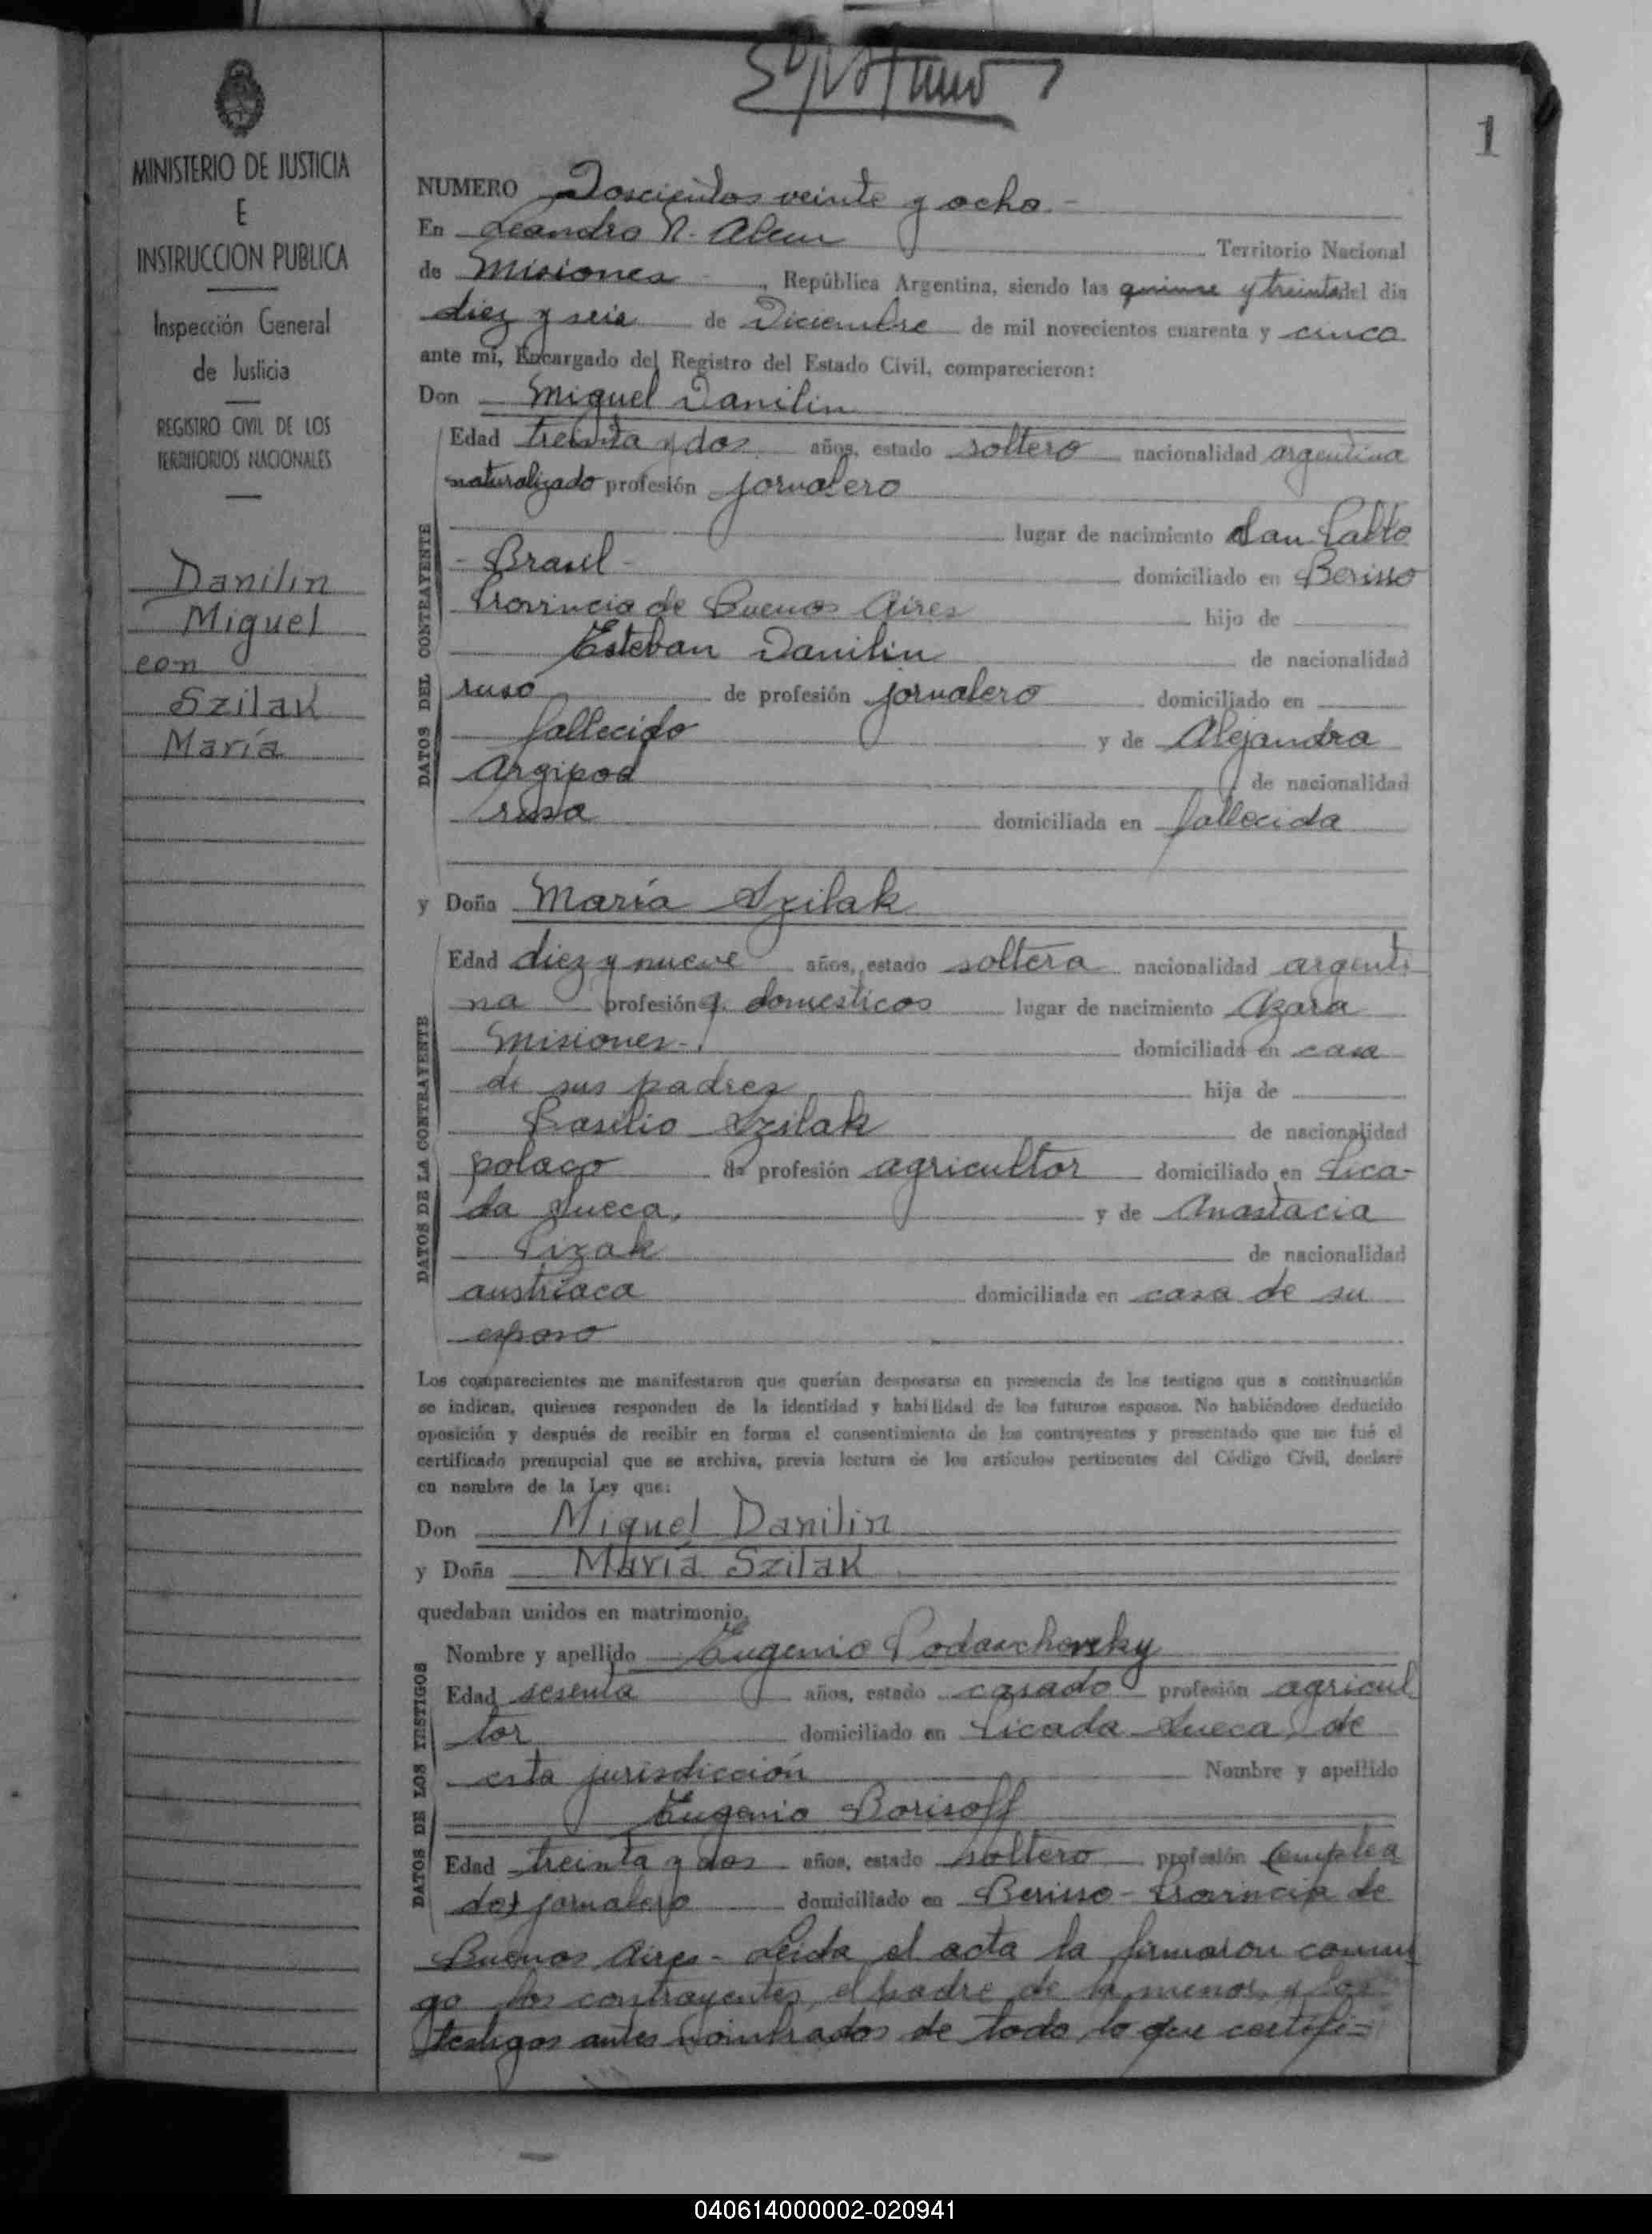 1
MINISTERIO DE JUSTICIA
E
INSTRUCCION PUBLICA
Inspección General
de Justicia
REGISTRO CIVIL DE LOS
TERRITORIOS NACIONALES
Danilin
Miguel
con
Szilak
María
NUMERO Doscientos veinte y ocho.-
En Leandro N. Alem Territorio Nacional
de Misiones, República Argentina, siendo las quince y treinta del día
diez y seis de Diciembre de mil novecientos cuarenta y cinco
ante mí, Encargado del Registro del Estado Civil, comparecieron:
Don Miguel Danilin
DATOS DEL CONTRAYENTE
Edad treinta y dos años, estado soltero nacionalidad argentina
naturalizado profesión jornalero
lugar de nacimiento San Pablo
- Brasil - domiciliado en Berisso
Provincia de Buenos Aires hijo de
Esteban Danilin de nacionalidad
ruso de profesión jornalero domiciliado en
fallecido y de Alejandra
Argipod de nacionalidad
rusa domiciliada en fallecida
y Doña María Szilak
DATOS DE LA CONTRAYENTE
Edad diez y nueve años, estado soltera nacionalidad argenti
na profesión q. domesticos lugar de nacimiento Azara
Misiones-. domiciliada en casa
de sus padres hija de
Basilio Szilak de nacionalidad
polaco de profesión agricultor domiciliado en Pica-
da Sueca, y de Anastacia
Pizak de nacionalidad
austríaca domiciliada en casa de su
esposo
Los comparecientes me manifestaron que querían desposarse en presencia de los testigos que a continuación
se indican, quienes responden de la identidad y habilidad de los futuros esposos. No habiéndose deducido
oposición y después de recibir en forma el consentimiento de los contrayentes y presentado que me fué el
certificado prenupcial que se archiva, previa lectura de los artículos pertinentes del Código Civil, declaré
en nombre de la Ley que:
Don Miguel Danilin
y Doña María Szilak
quedaban unidos en matrimonio.
DATOS DE LOS TESTIGOS
Nombre y apellido Eugenio
Edad sesenta años, estado casado profesión agricul
tor domiciliado en Picada Sueca, de
esta jurisdicción Nombre y apellido
Eugenio Borisoff
Edad treinta y dos años, estado soltero profesión (emplea
do) jornalero domiciliado en Berisso - Provincia de
Buenos Aires - Leida el acta la firmaron conmi
go los contrayentes, el padre de la menor y los
testigos antes nombrados de todo lo que certifi=
040614000002-020941